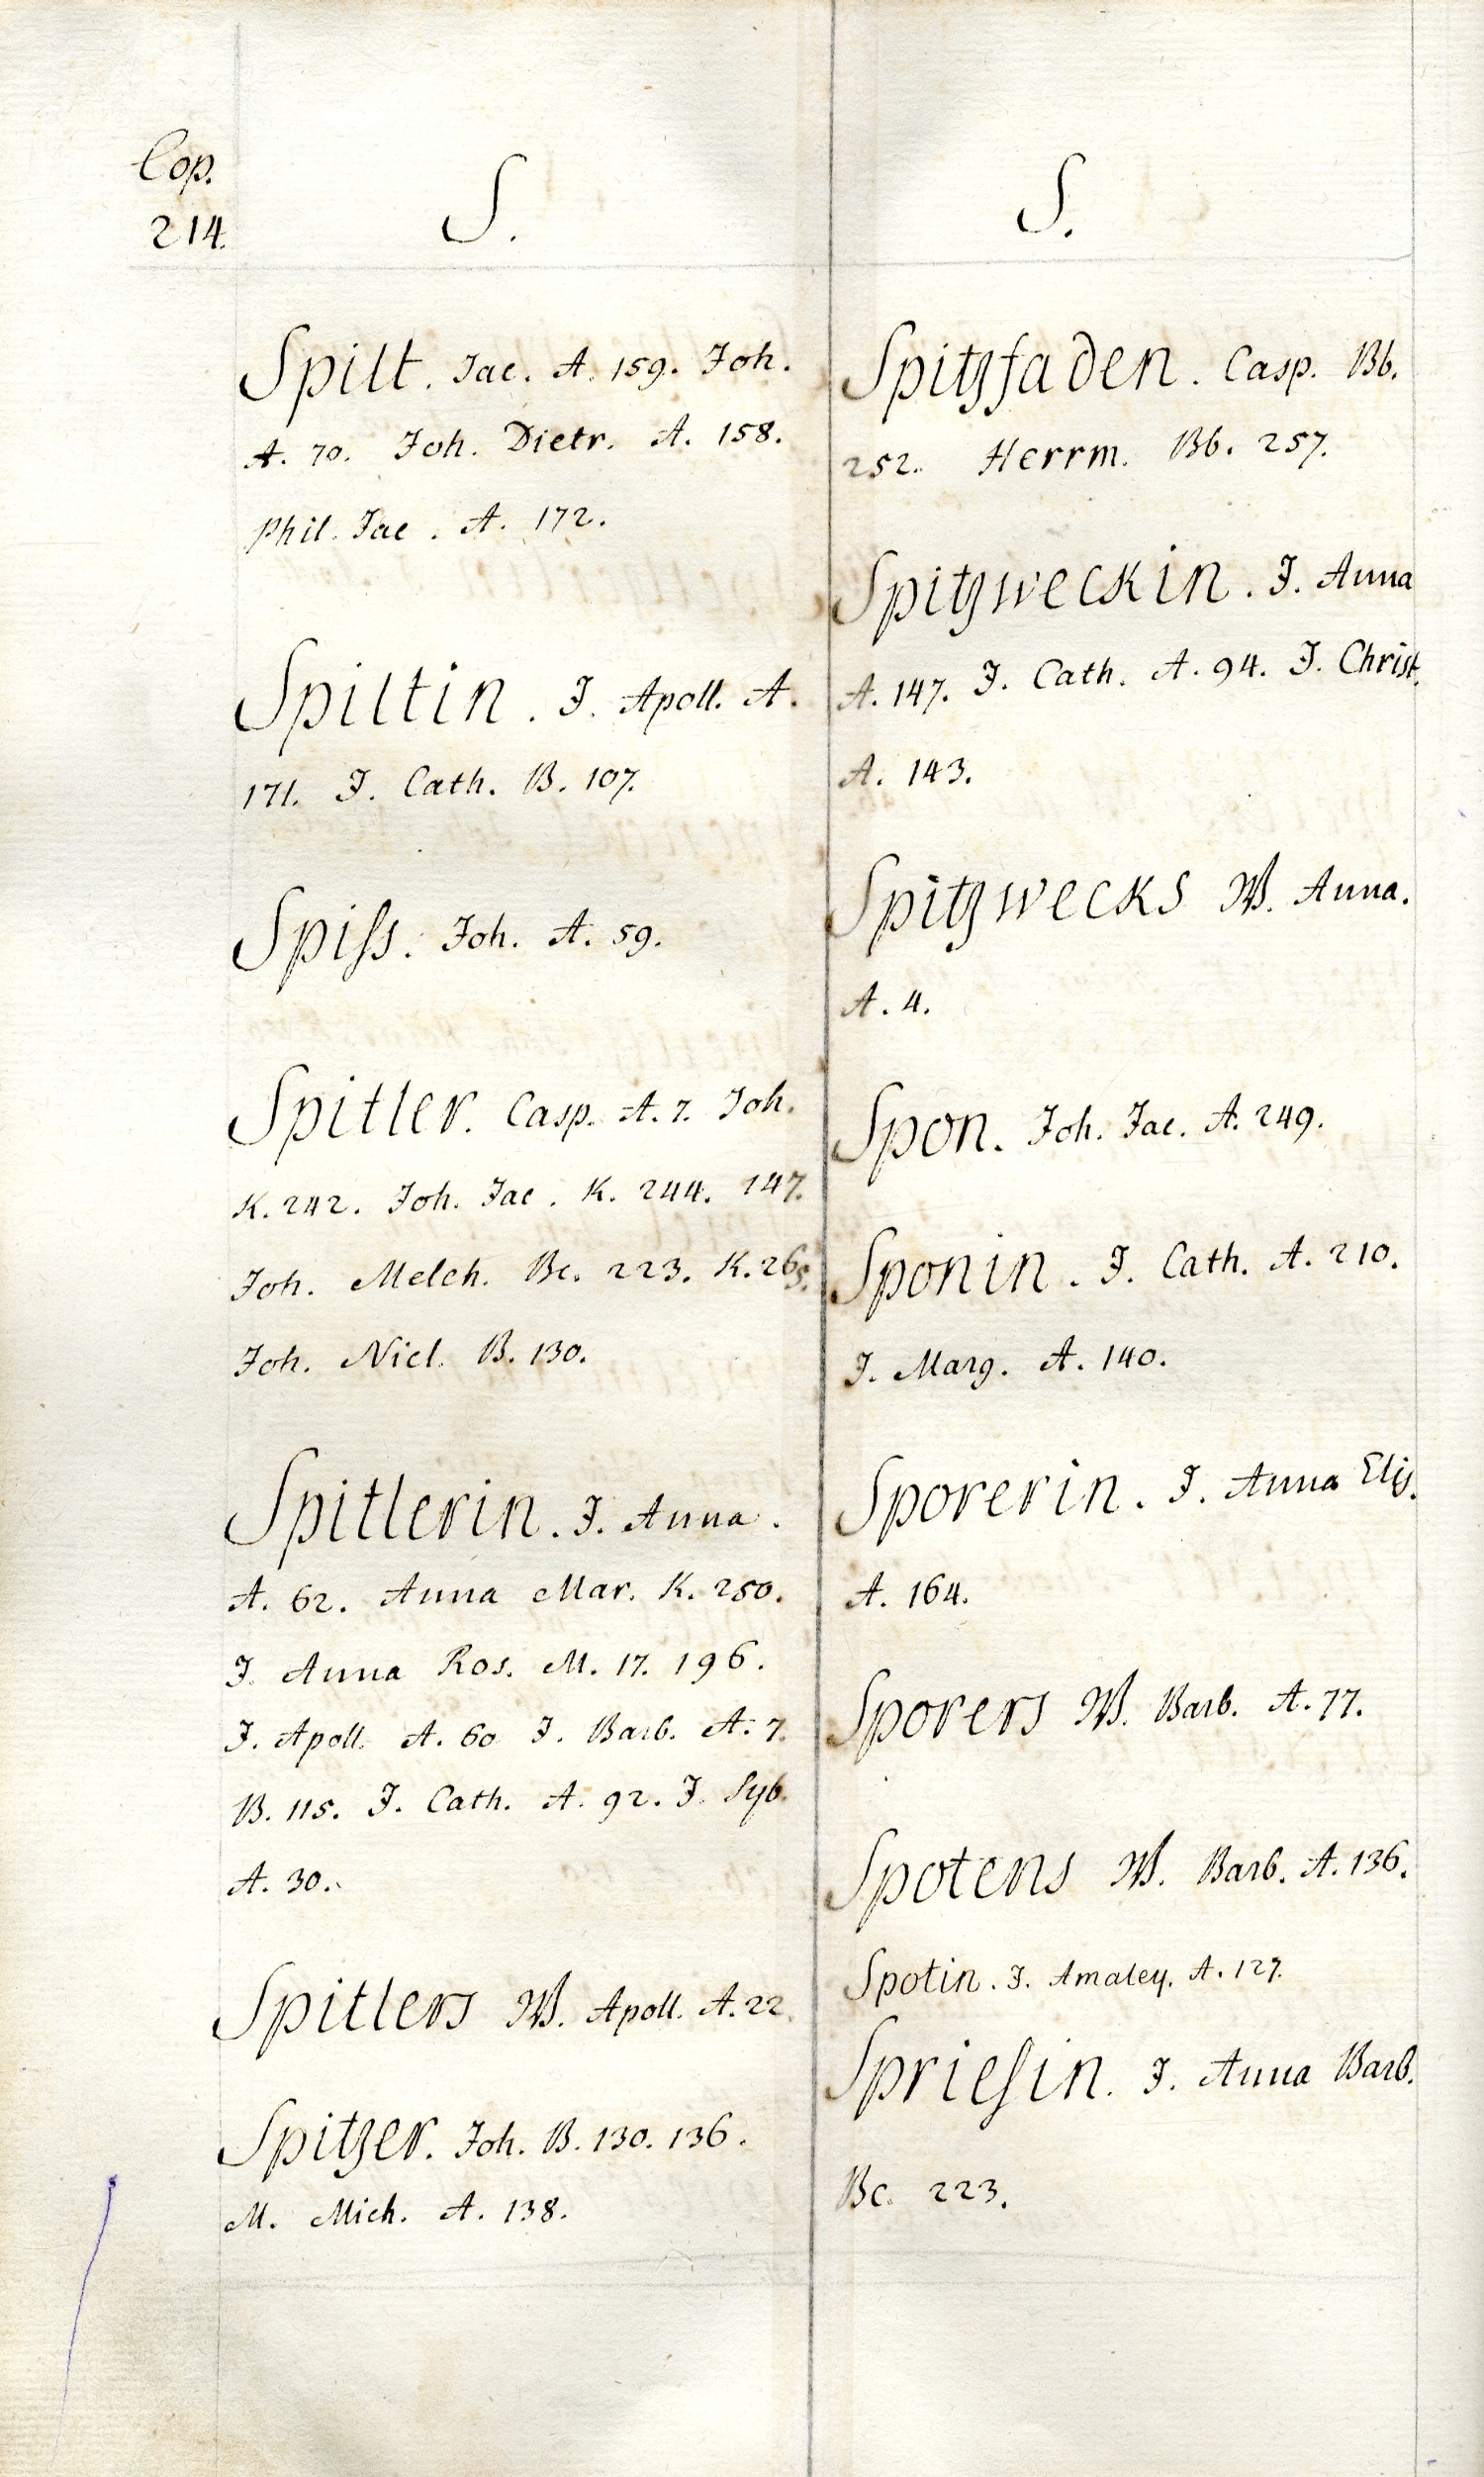 Cop.
214.
S.
Spilt. Jac. A. 159. Joh.
A. 70. Joh. Dietr. A. 158.
Phil. Jac. A. 172.
Spiltin. J. Apoll. A.
171. J. Cath. B. 107.
Spiss. Joh. A. 59.
Spitler. Casp. A. 7. Joh.
K. 242. Joh. Jac. K. 244. 147.
Joh. Melch. Bc. 223. K. 265.
Joh. Nicl. B. 130.
Spitlerin. J. Anna.
A. 62. Anna Mar. K. 250.
J. Anna Ros. M. 17. 196.
J. Apoll. A. 60 J. Barb. A. 7.
B. 115. J. Cath. A. 92. J. Syb.
A. 30.
Spitlers W. Apoll. A. 22.
Spitzer. Joh. B. 130. 136.
M. Mich. A. 138.
S.
Spitzfaden. Casp. Bb.
252. Herrm. Bb. 257.
Spitzweckin. J. Anna
A. 147. J. Cath. A. 94. J. Christ.
A. 143.
Spitzwecks W. Anna.
A. 4.
Spon. Joh. Jac. A. 249.
Sponin. J. Cath. A. 210.
J. Marg. A. 140.
Sporerin. J. Anna Elis.
A. 164.
Sporers W. Barb. A. 77.
Spotens W. Barb. A. 136.
Spotin. J. Amaley. A. 127.
Spriesin. J. Anna Barb.
Bc. 223.